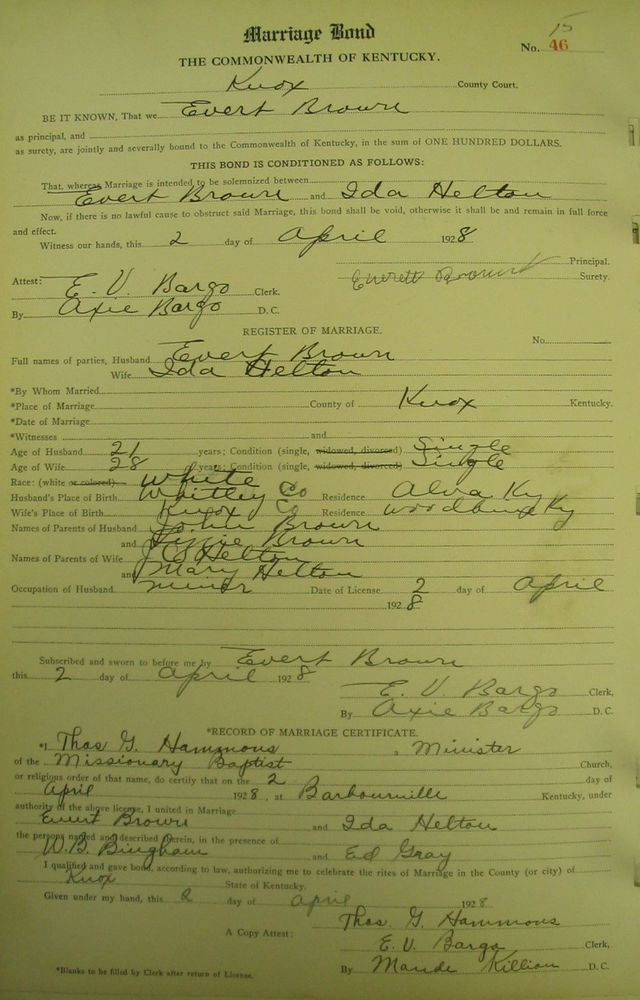 15
Marriage Bond
No. 46
THE COMMONWEALTH OF KENTUCKY.
Knox County Court.
BE IT KNOWN, That we Evert Brown
as principal, and
as surety, are jointly and severally bound to the Commonwealth of Kentucky, in the sum of ONE HUNDRED DOLLARS.
THIS BOND IS CONDITIONED AS FOLLOWS:
That, whereas Marriage is intended to be solemnized between
Evert Brown and Ida Helton
Now, if there is no lawful cause to obstruct said Marriage, this bond shall be void, otherwise it shall be and remain in full force
and effect.
Witness our hands, this 2 day of April 1928
Principal.
Everett Brown Surety.
Attest: E. V. Bargo Clerk.
By Axie Bargo D. C.
REGISTER OF MARRIAGE.
No.
Full names of parties, Husband Evert Brown
Wife Ida Helton
*By Whom Married
*Place of Marriage County of Knox Kentucky.
*Date of Marriage
*Witnesses and
Age of Husband 21 years; Condition (single, widowed, divorced) Single
Age of Wife 28 years; Condition (single, widowed, divorced) Single
Race: (white or colored) White
Husband's Place of Birth Whitley Co Residence Alva Ky
Wife's Place of Birth Knox Co Residence Ky
Names of Parents of Husband John Brown
and Brown
Names of Parents of Wife Helton
and Mary Helton
Occupation of Husband miner Date of License 2 day of April
1928
Subscribed and sworn to before me by Evert Brown
this 2 day of April 1928
E. V. Bargo Clerk,
By Axie Bargo D. C.
*RECORD OF MARRIAGE CERTIFICATE.
*I Thos G. Hammons a Minister
of the Missionary Baptist Church,
or religious order of that name, do certify that on the 2 day of
April 1928, at Barbourville Kentucky, under
authority of the above license, I united in Marriage
Evert Brown and Ida Helton
the persons named and described therein, in the presence of
W. B. Bingham and Ed Gray
I qualified and gave bond, according to law, authorizing me to celebrate the rites of Marriage in the County (or city) of
Knox State of Kentucky.
Given under my hand, this 2 day of April 1928
Thos. G. Hammons
A Copy Attest: E. V. Bargo Clerk,
*Blanks to be filled by Clerk after return of License. By Maude Killion D. C.